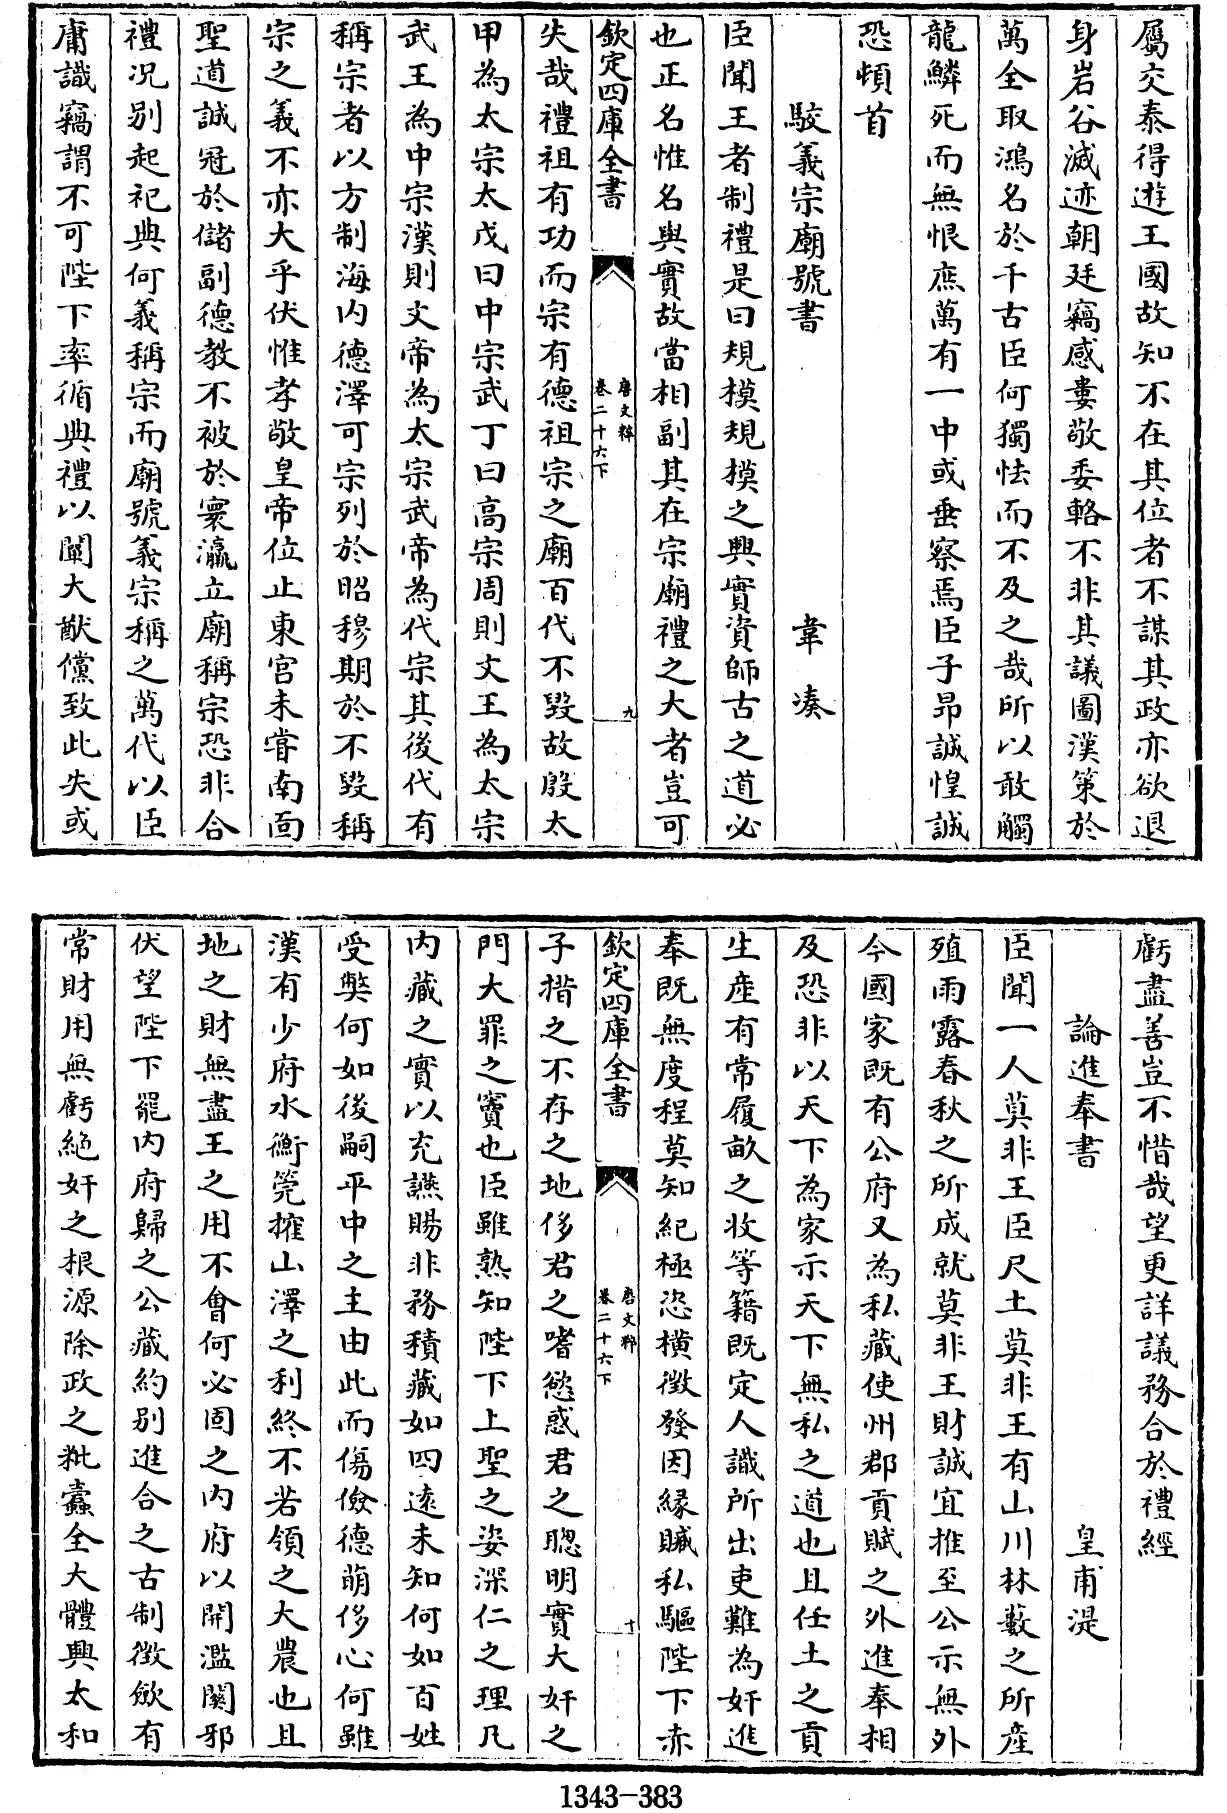 屬交泰得遊王國故知不在其位者不謀其政亦欲退
身岩谷滅迹朝廷竊感婁敬委輅不非其議圖漢策於
萬全取鴻名於千古臣何獨怯而不及之哉所以敢觸
龍鱗死而無恨庶萬有一中或垂察焉臣子昂誠惶誠
恐頓首
駮義宗廟號書 韋湊
臣聞王者制禮是曰規模規模之興實資師古之道必
也正名惟名與實故當相副其在宗廟禮之大者豈可
欽定四庫全書 唐文粹 卷二十六下 九
失哉禮祖有功而宗有德祖宗之廟百代不毀故殷太
甲為太宗太戊曰中宗武丁曰高宗周則文王為太宗
武王為中宗漢則文帝為太宗武帝為代宗其後代有
稱宗者以方制海内德澤可宗列於昭穆期於不毀稱
宗之義不亦大乎伏惟孝敬皇帝位止東宮未嘗南面
聖道誠冠於儲副德教不被於寰瀛立廟稱宗恐非合
禮況別起祀典何義稱宗而廟號義宗稱之萬代以臣
庸識竊謂不可陛下率循典禮以闡大猷儻致此失或
虧盡善豈不惜哉望更詳議務合於禮經
論進奉書 皇甫湜
臣聞一人莫非王臣尺土莫非王有山川林藪之所產
殖雨露春秋之所成就莫非王財誠宜推至公示無外
今國家既有公府又為私藏使州郡貢賦之外進奉相
及恐非以天下為家示天下無私之道也且任土之貢
生產有常履畝之收等籍既定人識所出吏難為奸進
奉既無度程莫知紀極恣横徵發因緣贓私驅陛下赤
欽定四庫全書 唐文粹 卷二十六下 十
子措之不存之地侈君之嗜慾惑君之聰明實大奸之
門大罪之竇也臣雖熟知陛下上聖之姿深仁之理凡
内藏之實以充讌賜非務積藏如四遠未知何如百姓
受弊何如後嗣平中之主由此而傷儉德萌侈心何雖
漢有少府水衡筦攉山澤之利終不若領之大農也且
地之財無盡王之用不會何必固之内府以開濫闕邪
伏望陛下罷内府歸之公藏約別進合之古制徵斂有
常財用無虧絶奸之根源除政之粃蠹全大體興太和
1343-383